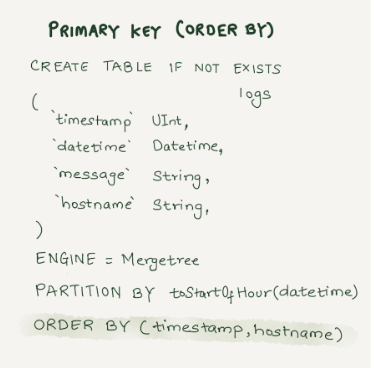 PRIMARY KEY (ORDER BY)
CREATE TABLE IF NOT EXISTS
logs
(
`timestamp` UInt,
`datetime` Datetime,
`message` String,
`hostname` String,
)
ENGINE = Mergetree
PARTITION BY toStartOfHour(datetime)
ORDER BY (timestamp, hostname)